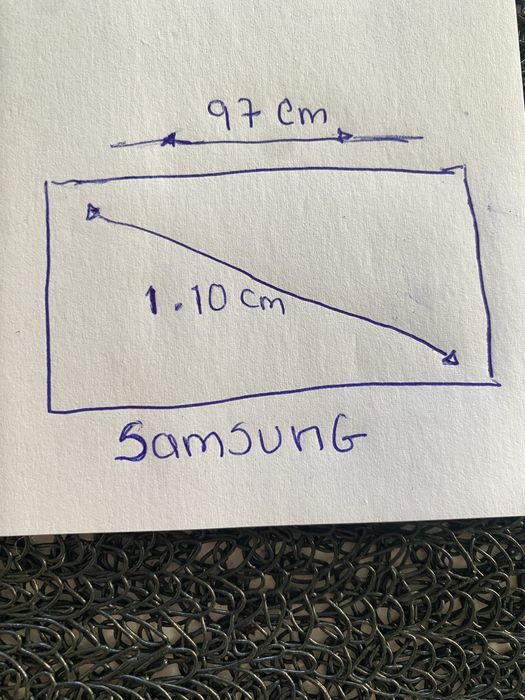 97 cm
1.10 cm
SamSunG